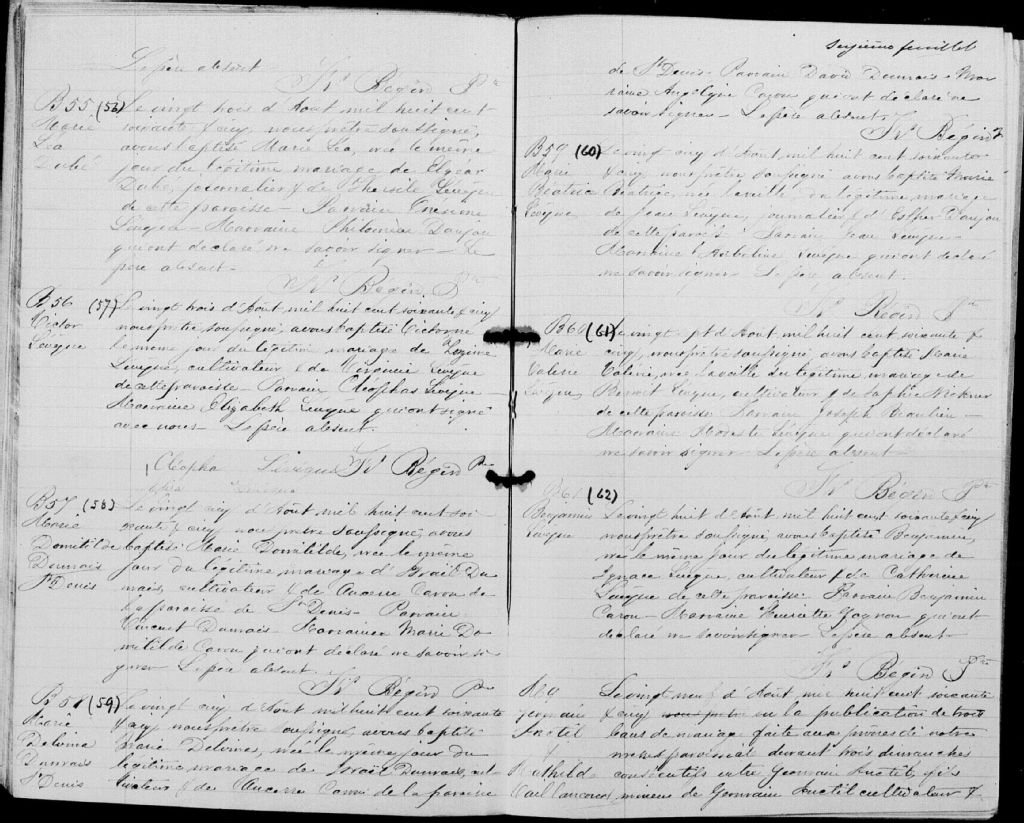 Le père absent
Frs Bégin Ptre
B55 (56) Le vingt trois d'Aout mil huit cent
Marie soixante & cinq, nous prêtre soussigné,
Léa avons baptisé Marie Léa, née le même
Dubé jour du légitime mariage de Elzear
Dubé, journalier & de Thersile Levêque
de cette paroisse - Parrain Onesime
Levêque - Marraine Philomène Danjou
qui ont déclaré ne savoir signer - Le
père absent -
Frs Bégin Ptre
B56 (57) Le vingt trois d'Aout mil huit cent soixante & cinq
Victor nous prêtre soussigné, avons baptisé Victor né
Levêque le même jour du légitime mariage de
Levêque, cultivateur & de Virginie Levêque
de cette paroisse - Parrain Cléophas Levêque -
Marraine Elizabeth Levêque qui ont signé
avec nous - Le père absent.
Cléopha Leveque Frs Bégin Ptre
B57 (58) Le vingt cinq d'Aout mil huit cent soi-
Marie xante & cinq nous prêtre soussigné, avons
Domitilde baptisé Marie Domitilde, née le même
Dumais jour du légitime mariage d'Israël Du
St Denis mais, cultivateur & de Caron de
la paroisse de St Denis - Parrain
Vincent Dumais - Marraine Marie Do
mitilde Caron qui ont déclaré ne savoir si
gner Le père absent.
Frs Bégin Ptre
B58 (59) Le vingt cinq d'Aout mil huit cent soixante
Marie & cinq nous prêtre soussigné, avons baptisé
Delvina Marie Delvina, née le même jour du
Dumais légitime mariage de Israël Dumais, cul
St Denis tivateur & de Caron de la paroisse
feuillet
de St Denis - Parrain David Dumais - Mar
raine Angelique Caron qui ont déclaré ne
savoir signer - Le père absent.
Frs Bégin Ptre
B59 (60) Le vingt cinq d'Aout mil huit cent soixante
Marie & cinq nous prêtre soussigné avons baptisé Marie
Beatrice Beatrice, née la veille du légitime mariage
Levêque de Jean Levêque, journalier & d'Esther Danjou
de cette paroisse Parrain Jean Levêque -
Marraine Levêque qui ont déclaré
ne savoir signer - Le père absent.
Frs Bégin Ptre
B60 (61) Le vingt sept d'Aout mil huit cent soixante &
Marie cinq, nous prêtre soussigné avons baptisé Marie
Valérie Valérie, née la veille du légitime mariage de
Levêque Benoit Levêque, cultivateur & de Sophie
de cette paroisse Parrain Joseph Beaulieu -
Marraine Modeste Levêque qui ont déclaré
ne savoir signer - Le père absent -
Frs Bégin Ptre
B61 (62)
Benjamin Le vingt huit d'Aout mil huit cent soixante & cinq
Levêque nous prêtre soussigné, avons baptisé Benjamin,
né le même jour du légitime mariage de
Ignace Levêque, cultivateur & de Catherine
Levêque de cette paroisse Parrain Benjamin
Caron - Marraine Henriette Gagnon qui ont
déclaré ne savoir signer - Le père absent -
Frs Bégin Ptre
Le vingt neuf d'Aout mil huit cent soixante
Germain & cinq nous prêtre vu la publication de trois
Anctil bans de mariage faite aux prones de notre
& messe paroissiale durant trois dimanches
Mathilde consécutifs entre Germain Anctil, fils
Vaillancour mineur de Germain Anctil cultivateur &